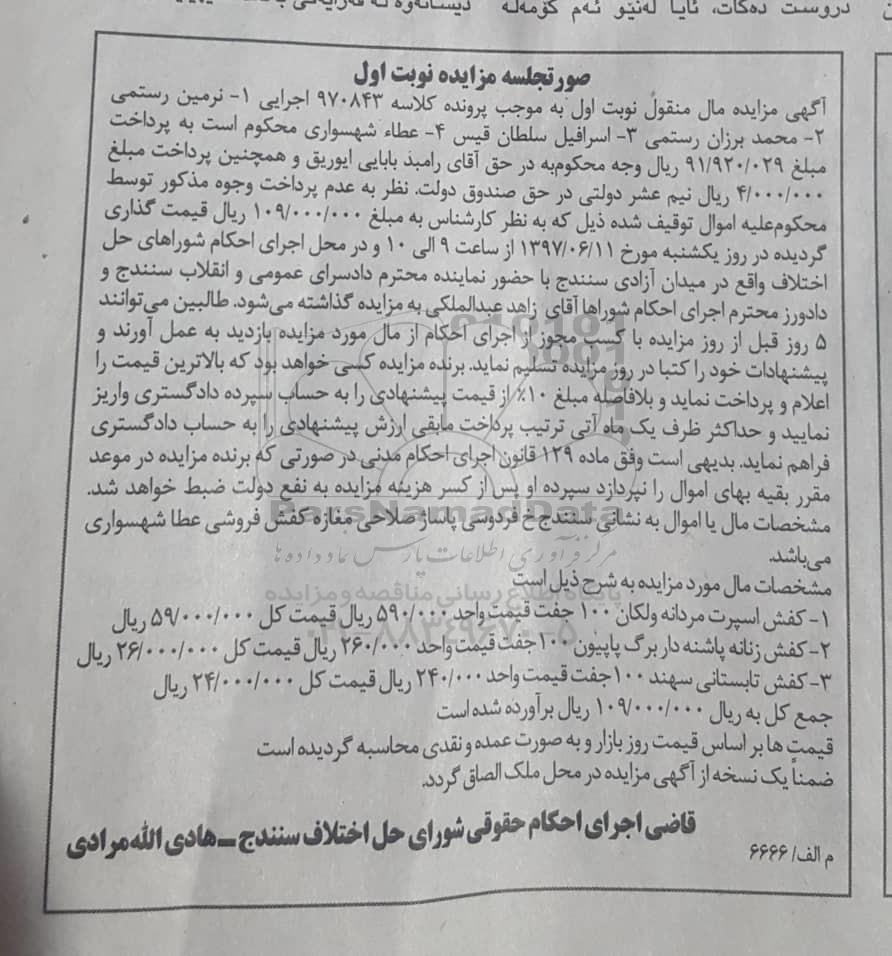 دروست دەکات، ئایا لەنێو ئەم کۆمەڵە
صورتجلسه مزایده نوبت اول
آگهی مزایده مال منقول نوبت اول به موجب پرونده کلاسه ۹۷۰۸۴۳ اجرایی ۱- نرمین رستمی
۲- محمد برزان رستمی ۳- اسرافیل سلطان قیس ۴- عطاء شهسواری محکوم است به پرداخت
مبلغ ۹۱/۹۲۰/۰۲۹ ریال وجه محکوم‌به در حق آقای رامبد بابایی ایوریق و همچنین پرداخت مبلغ
۴/۰۰۰/۰۰۰ ریال نیم عشر دولتی در حق صندوق دولت. نظر به عدم پرداخت وجوه مذکور توسط
محکوم‌علیه اموال توقیف شده ذیل که به نظر کارشناس به مبلغ ۱۰۹/۰۰۰/۰۰۰ ریال قیمت گذاری
گردیده در روز یکشنبه مورخ ۱۳۹۷/۰۶/۱۱ از ساعت ۹ الی ۱۰ و در محل اجرای احکام شوراهای حل
اختلاف واقع در میدان آزادی سنندج با حضور نماینده محترم دادسرای عمومی و انقلاب سنندج و
دادورز محترم اجرای احکام شوراها آقای زاهد عبدالملکی به مزایده گذاشته می‌شود. طالبین می‌توانند
۵ روز قبل از روز مزایده با کسب مجوز از اجرای احکام از مال مورد مزایده بازدید به عمل آورند و
پیشنهادات خود را کتبا در روز مزایده تسلیم نماید. برنده مزایده کسی خواهد بود که بالاترین قیمت را
اعلام و پرداخت نماید و بلافاصله مبلغ ۱۰٪ از قیمت پیشنهادی را به حساب سپرده دادگستری واریز
نمایید و حداکثر ظرف یک ماه آتی ترتیب پرداخت مابقی ارزش پیشنهادی را به حساب دادگستری
فراهم نماید. بدیهی است وفق ماده ۱۲۹ قانون اجرای احکام مدنی در صورتی که برنده مزایده در موعد
مقرر بقیه بهای اموال را نپردازد سپرده او پس از کسر هزینه مزایده به نفع دولت ضبط خواهد شد.
ParsNamadData
مشخصات مال یا اموال به نشانی سنندج خ فردوسی پاساژ صلاحی مغازه کفش فروشی عطا شهسواری
می‌باشد.
مرکز فرآوری اطلاعات پارس نماد داده ها
مشخصات مال مورد مزایده به شرح ذیل است
پایگاه اطلاع رسانی مناقصه و مزایده
۱- کفش اسپرت مردانه ولکان ۱۰۰ جفت قیمت واحد ۵۹۰/۰۰۰ ریال قیمت کل ۵۹/۰۰۰/۰۰۰ ریال
۰۲۱-۸۸۳۴۹۶۷۰-۵
۲- کفش زنانه پاشنه دار برگ پاپیون ۱۰۰ جفت قیمت واحد ۲۶۰/۰۰۰ ریال قیمت کل ۲۶/۰۰۰/۰۰۰ ریال
۳- کفش تابستانی سهند ۱۰۰ جفت قیمت واحد ۲۴۰/۰۰۰ ریال قیمت کل ۲۴/۰۰۰/۰۰۰ ریال
جمع کل به ریال ۱۰۹/۰۰۰/۰۰۰ ریال برآورده شده است
قیمت ها بر اساس قیمت روز بازار و به صورت عمده و نقدی محاسبه گردیده است
ضمناً یک نسخه از آگهی مزایده در محل ملک الصاق گردد.
قاضی اجرای احکام حقوقی شورای حل اختلاف سنندج ــ هادی الله مرادی
م الف/ ۶۶۶۶